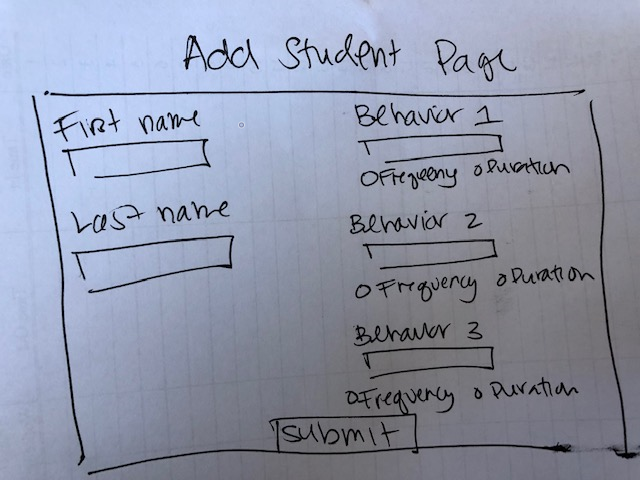 Add Student Page
First name
Last name
Behavior 1
O Freqeeny O Duration
Behavior 2
O Frequency O Duration
Behavior 3
O Frequency O Duration
submit